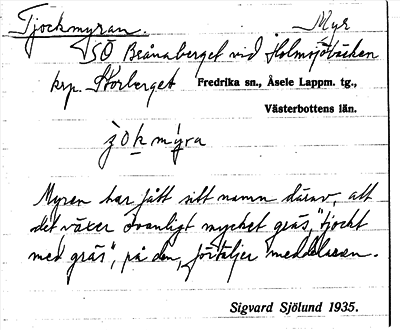 Tjockmyran. Myr
SO Brånaberget vid Holmsjöbäcken
krp. Storberget Fredrika sn., Åsele Lappm. tg.,
Västerbottens län.
Myren har fått sitt namn därav, att
det växer ovanligt mycket gräs, "tjockt
med gräs", på den, förtäljer meddelaren.
Sigvard Sjölund 1935.